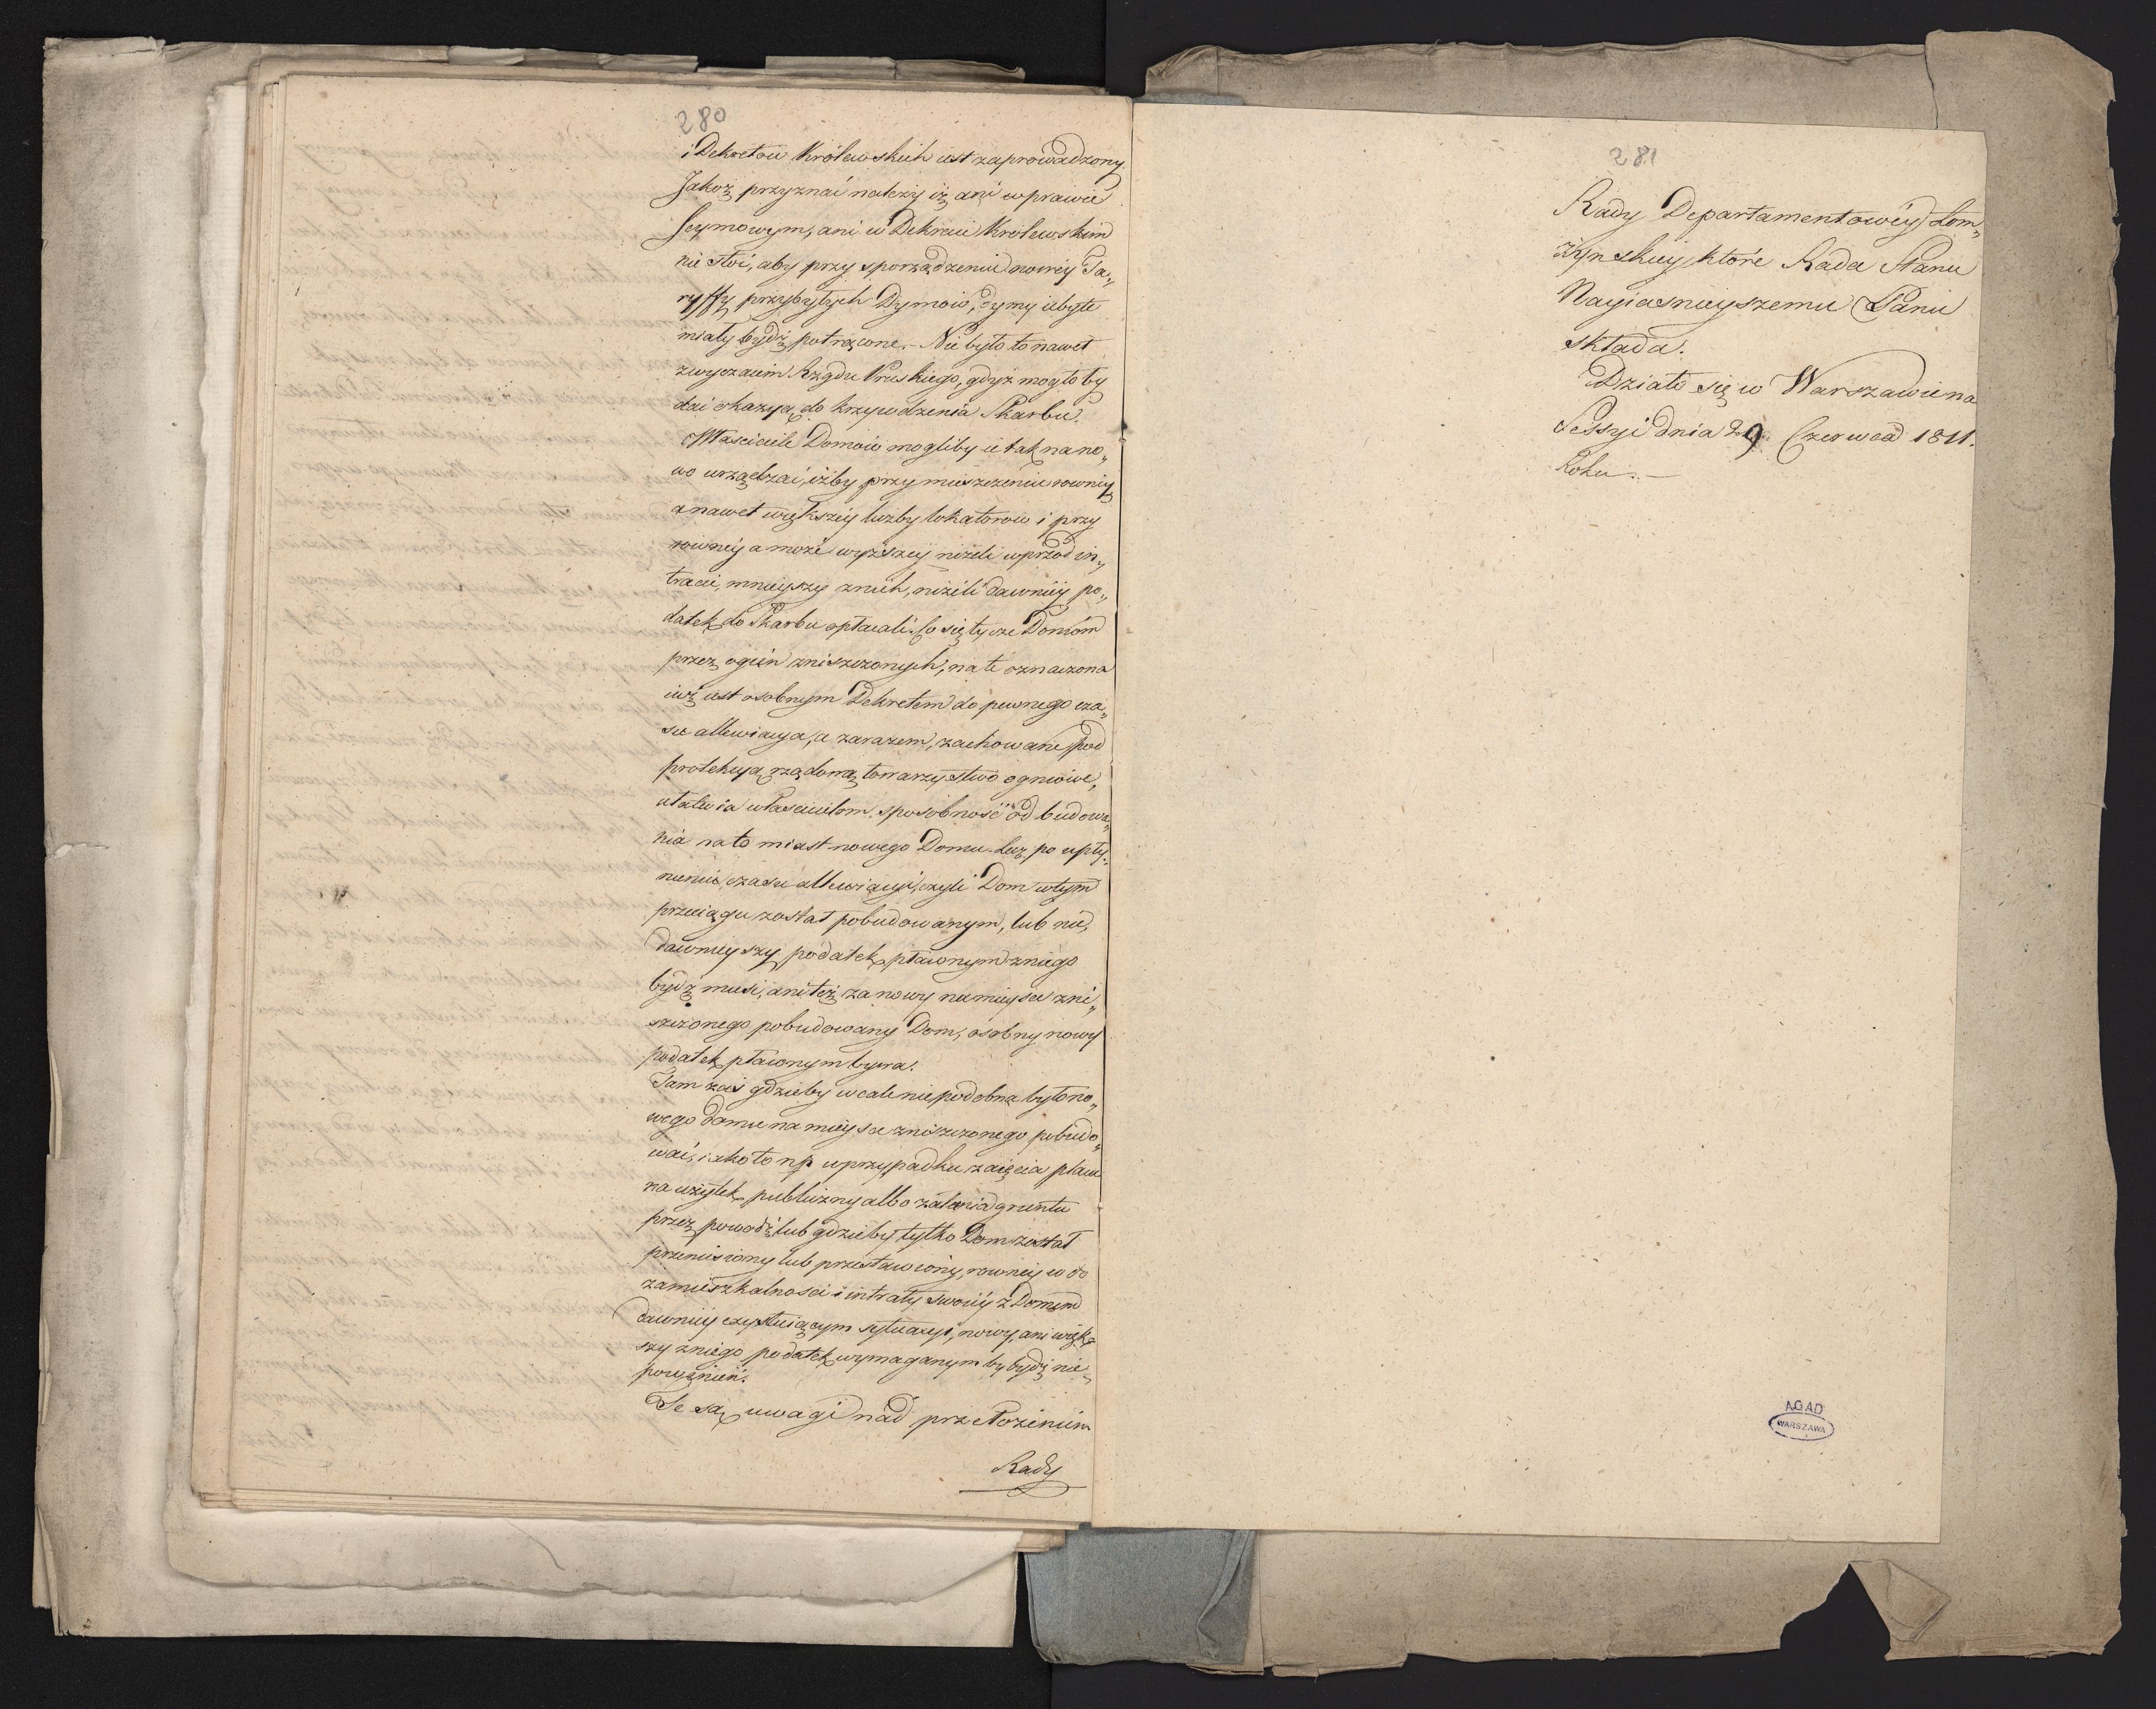 280
i Dekretów Królewskich iest zaprowadzony.
Jakoż przyznać należy iż ani w prawie
Seymowym, ani w Dekrecie Królewskim
nie stoi, aby przy sporządzeniu nowey Ta„
ryffy przybyłych Dymów, dymy ubyłe
miały bydź potrącone. – Nie było to nawet
zwyczaiem Rządu Pruskiego, gdyż mogłoby
dać okazyą do krzywdzenia Skarbu.
Właściciele Domów mogliby ie tak na no„
wo urządzać, iżby przy mieszczeniu rowney
a nawet większey liczby lokatorow i przy
rowney a może wyższey niżeli wprzód in„
tracie, mnieyszy z nich, niżeli dawniey po„
datek do Skarbu opłacali. Co się tycze Domów
przez ogień zniszczonych, na te oznaczona
iuż iest osobnym Dekretem do pewnego cza„
su allewiacya, a zarazem, zachowane pod
protekcyą rządową towarzystwo ogniowe,
ułatwia właścicielom sposobność odbudowa„
nia natomiast nowego Domu. Lecz po upły„
nieniu czasu allewiacyi, czyli Dom w tym
przeciągu został pobudowanym, lub nie,
dawnieyszy podatek płaconym z niego
bydź musi, ani też za nowy na mieysce zni„
szczonego pobudowany Dom, osobny nowy
podatek płaconym bywa.
Tam zaś gdzieby wcale niepodobna było no„
wego domu na mieysce zniszczonego pobudo„
wać, iako to np w przypadku zaięcia placu
na użytek publiczny albo zalania gruntu
przez powodź lub gdzieby tylko Dom został
przeniesiony lub przestawiony, rowney co do
zamieszkalności i intraty swoiey z Domem
dawniey exystuiącym sytuacyi, nowy, ani więk„
szy z niego podatek wymaganym by bydź nie„
powinien.
Te są uwagi nad przełożeniem
Rady
281
Rady Departamentowéy Łom„
żyńskiey które Rada Stanu
Nayiaśnieyszemu Panu
składa.
Działo się w Warszawie na
Sessyi dnia 29 Czerwca 1811.
Roku. –
AGAD
WARSZAWA